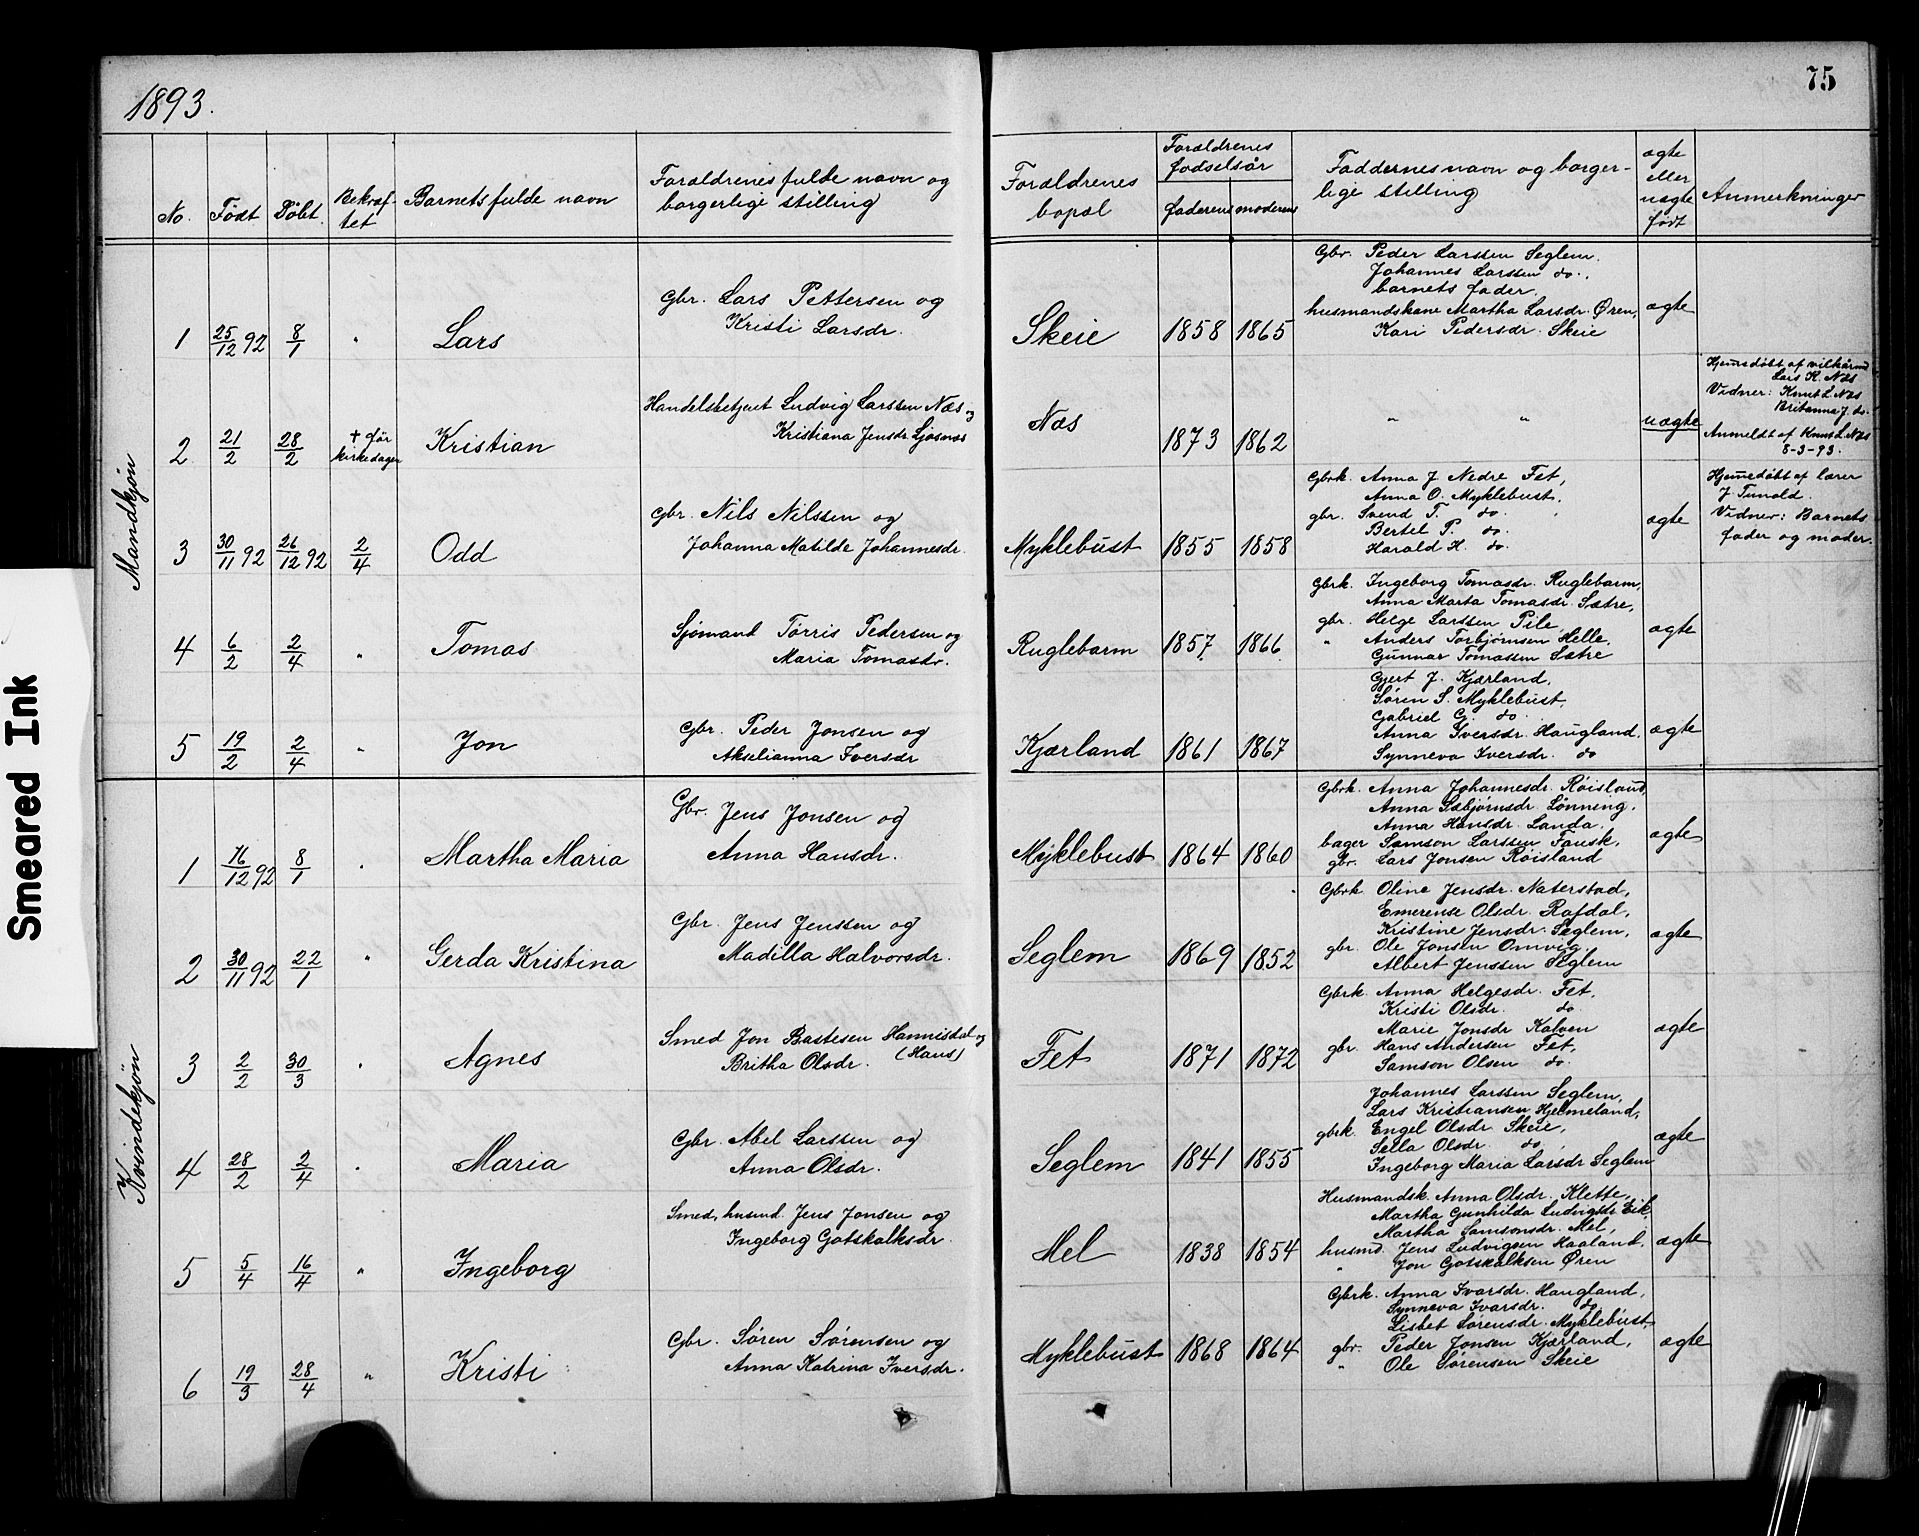 1893.
75
Smeared Ink
No. Født Døbt. Bekræf-tet Barnets fulde navn Forældrenes fulde navn og borgerlige stilling Forældrenes bopæl Forældrenes fødselsår faderens moderens Faddernes navn og borger-lige stilling ægte eller uægte født Anmerkninger
Mandkjøn
1 25/12 92 8/1 " Lars
Gbr. Lars Pettersen og
Kristi Larsdr.
Skeie 1858 1865
Gbr. Peder Larssen Seglem.
Johannes Larssen do.,
barnets fader,
husmandskone Martha Larsdr. Øren,
Kari Pedersdr. Skeie
ægte
2 21/2 28/2 + før kirkedagen Kristian
Handelsbetjent Ludvig Larssen Næs og
Kristiana Jensdr. Ljosnæs
Næs 1873 1862
" "
uægte
Hjemedøbt af
Lars K. Næs
Vidner: Knut L. Næs
Britanna J. do.
Anmeldt af Knut L. Næs
8-3-93.
3 30/11 92 26/12 92 2/4 Odd
Gbr. Nils Nilssen og
Johanna Matilde Johannesdr.
Myklebust 1855 1858
Gbrk. Anna J. Nedre Fet,
Anna O. Myklebust,
gbr. Svend T. do.
Bertel P. do.
Harald H. do.
ægte
Hjemedøbt af lærer
J. Tunold.
Vidner: Barnets
fader og moder.
4 6/2 2/4 " Tomas
Sjømand Tørris Pedersen og
Maria Tomasdr.
Ruglebarm 1857 1866
Gbrk. Ingeborg Tomasdr. Ruglebarm,
Anna Marta Tomasdr. Sætre,
gbr. Helge Larssen Pile,
" Anders Torbjørnsen Helle,
Gunnar Tomassen Sætre
ægte
5 19/2 2/4 " Jon
Gbr. Peder Jonsen og
Akselianna Iversdr
Kjærland 1861 1867
Gjert J. Kjærland,
Søren S. Myklebust,
Gabriel G. do.
Anna Iversdr. Haugland,
Synneva Iversdr. do
ægte
Kvindekjøn
1 16/12 92 8/1 " Martha Maria
Gbr. Jens Jonsen og
Anna Hansdr.
Myklebust 1864 1860
Gbrk. Anna Johannesdr. Røisland,
Anna Sæbjørnsdr. Lønning,
Anna Hansdr. Landa,
bager Samson Larssen Fausk,
gbr. Lars Jonsen Røisland
ægte
2 30/11 92 22/1 " Gerda Kristina
Gbr. Jens Jenssen og
Madilla Halvorsdr.
Seglem 1869 1852
Gbrk. Oline Jensdr. Naterstad,
Emerense Olsdr. Rafdal,
Kristine Jensdr. Seglem,
gbr. Ole Jonsen Omvig,
Albert Jenssen Seglem
ægte
3 2/2 30/3 " Agnes
Smed Jon Bastesen Hannisdal og
(Haus)
Britha Olsdr.
Fet 1871 1872
Gbrk. Anna Helgesdr. Fet,
Kristi Olsdr. do.
Marie Jonsdr. Kalven
gbr. Hans Andersen Fet,
Samson Olsen do.
ægte
4 28/2 2/4 " Maria
Gbr. Abel Larssen og
Anna Olsdr.
Seglem 1841 1855
Johannes Larssen Seglem,
Lars Kristiansen Hjelmeland,
gbrk. Engel Olsdr. Skeie,
Sella Olsdr. do
Ingeborg Maria Larsdr. Seglem
ægte
5 5/4 16/4 " Ingeborg
Smed, husmd. Jens Jonsen og
Ingeborg Gotskalksdr.
Mel 1838 1854
Husmandsk. Anna Olsdr. Klette,
Martha Gunhilda Ludvigsdr. Eik,
Martha Samsonsdr. Mel,
husmd. Jens Ludvigsen Haaland,
" Jon Gotskalksen Øren
ægte
6 19/3 28/4 " Kristi
Gbr. Søren Sørensen og
Anna Katrina Iversdr.
Myklebust 1868 1864
Gbrk. Anna Ivarsdr. Haugland,
Synneva Ivarsdr. do
Lisbet Sørensdr. Myklebust,
gbr. Peder Jonsen Kjærland,
" Ole Sørensen Skeie
ægte